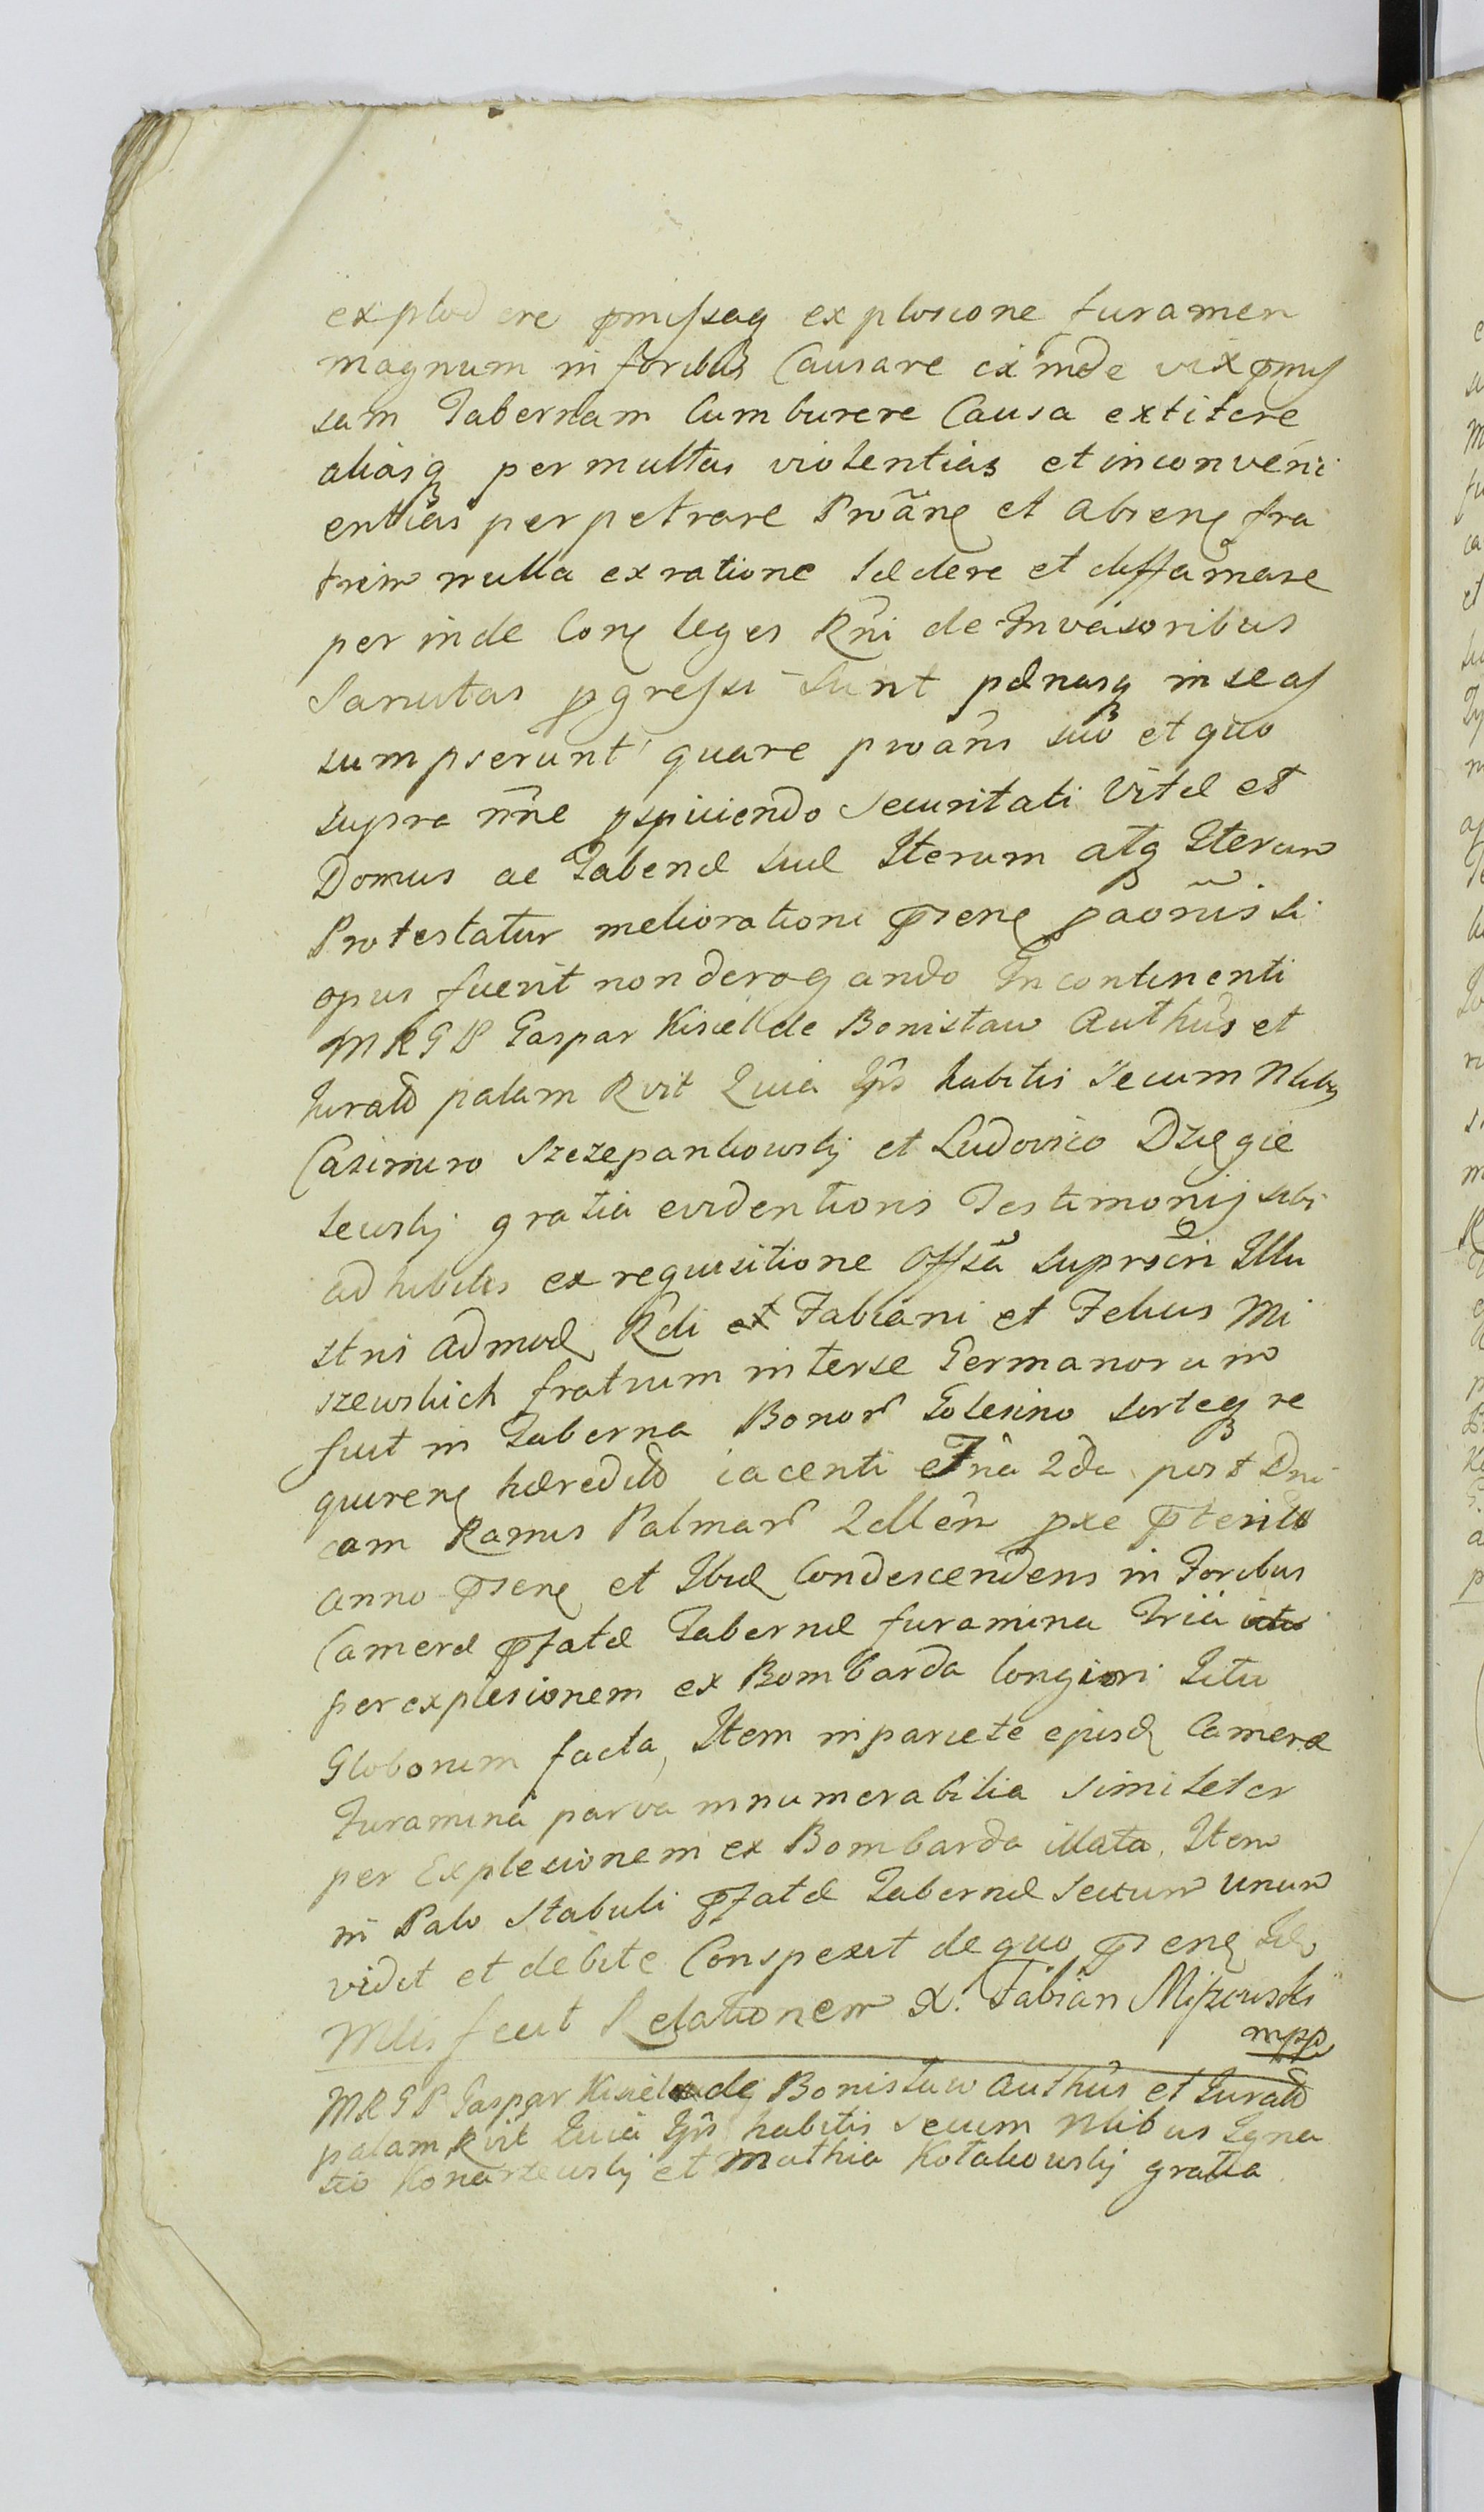 explodere pmissaq explosione furamen
magnum in foribus Causare ex inde vix pmis
sam Tabernam Cumburere Causa extitere
aliasq permultas violentias et inconveni
entias perpetrare Prvãne et absene fra
trem nulla ex ratione lædere et diffamare
per inde Cone leges Rñi de Invasoribus
Sancitas pgressi sunt pænasq in se as
sumpserunt quare prvañs suo et quo
supra nñe pspiciendo Securitati Vitæ et
Domus ac Tabenæ suæ Iterum atq Iterum
Protestatur melioratione psene paõnis si
opus fuerit non derogando In continenti
MRGP Gaspar Kisiel de Bonislaw Authûs et
Jurato palam Rvit Quia Ipŝ habitis secum Nlibq
Casimiro Szczepankowskj et Ludovico Dzięgie
lewskj gratia evidentioris Testimonij sibi
adhibitis ex requisitione Offsã
stris admod Rdi et Fabiani et Felicis Mi
szewskich fratrum inter se Germanorum
fuit in Taberna Bonor Golesino sorteq re
quirene hæredito iacenti
cam Ramis Palmar pxe pterito
anno psene et Ibid Condescendens in Foribus
Cameræ pfatæ Tabernæ furamina Tria
per explosionem ex Bombarda longiori
Globonum facta, Item in pariete ejusd Cameræ
Furamina parva innumerabilia similiter
per Explosionem ex Bombarda illata, Item
in Palo Stabuli pfatæ Tabernæ Sectum unum
vidit et debite Conspexit de quo psene
Mlis fecit Relationem X. Fabian Miszewski
mpp
MRGP Gaspar Kisiel de Bonislaw Authûs et Jurato
palam Rvit Quia Ipŝ habitis secum Nlibus Igna
tio Konarzewskj et Mathia Kotakowskj gratia